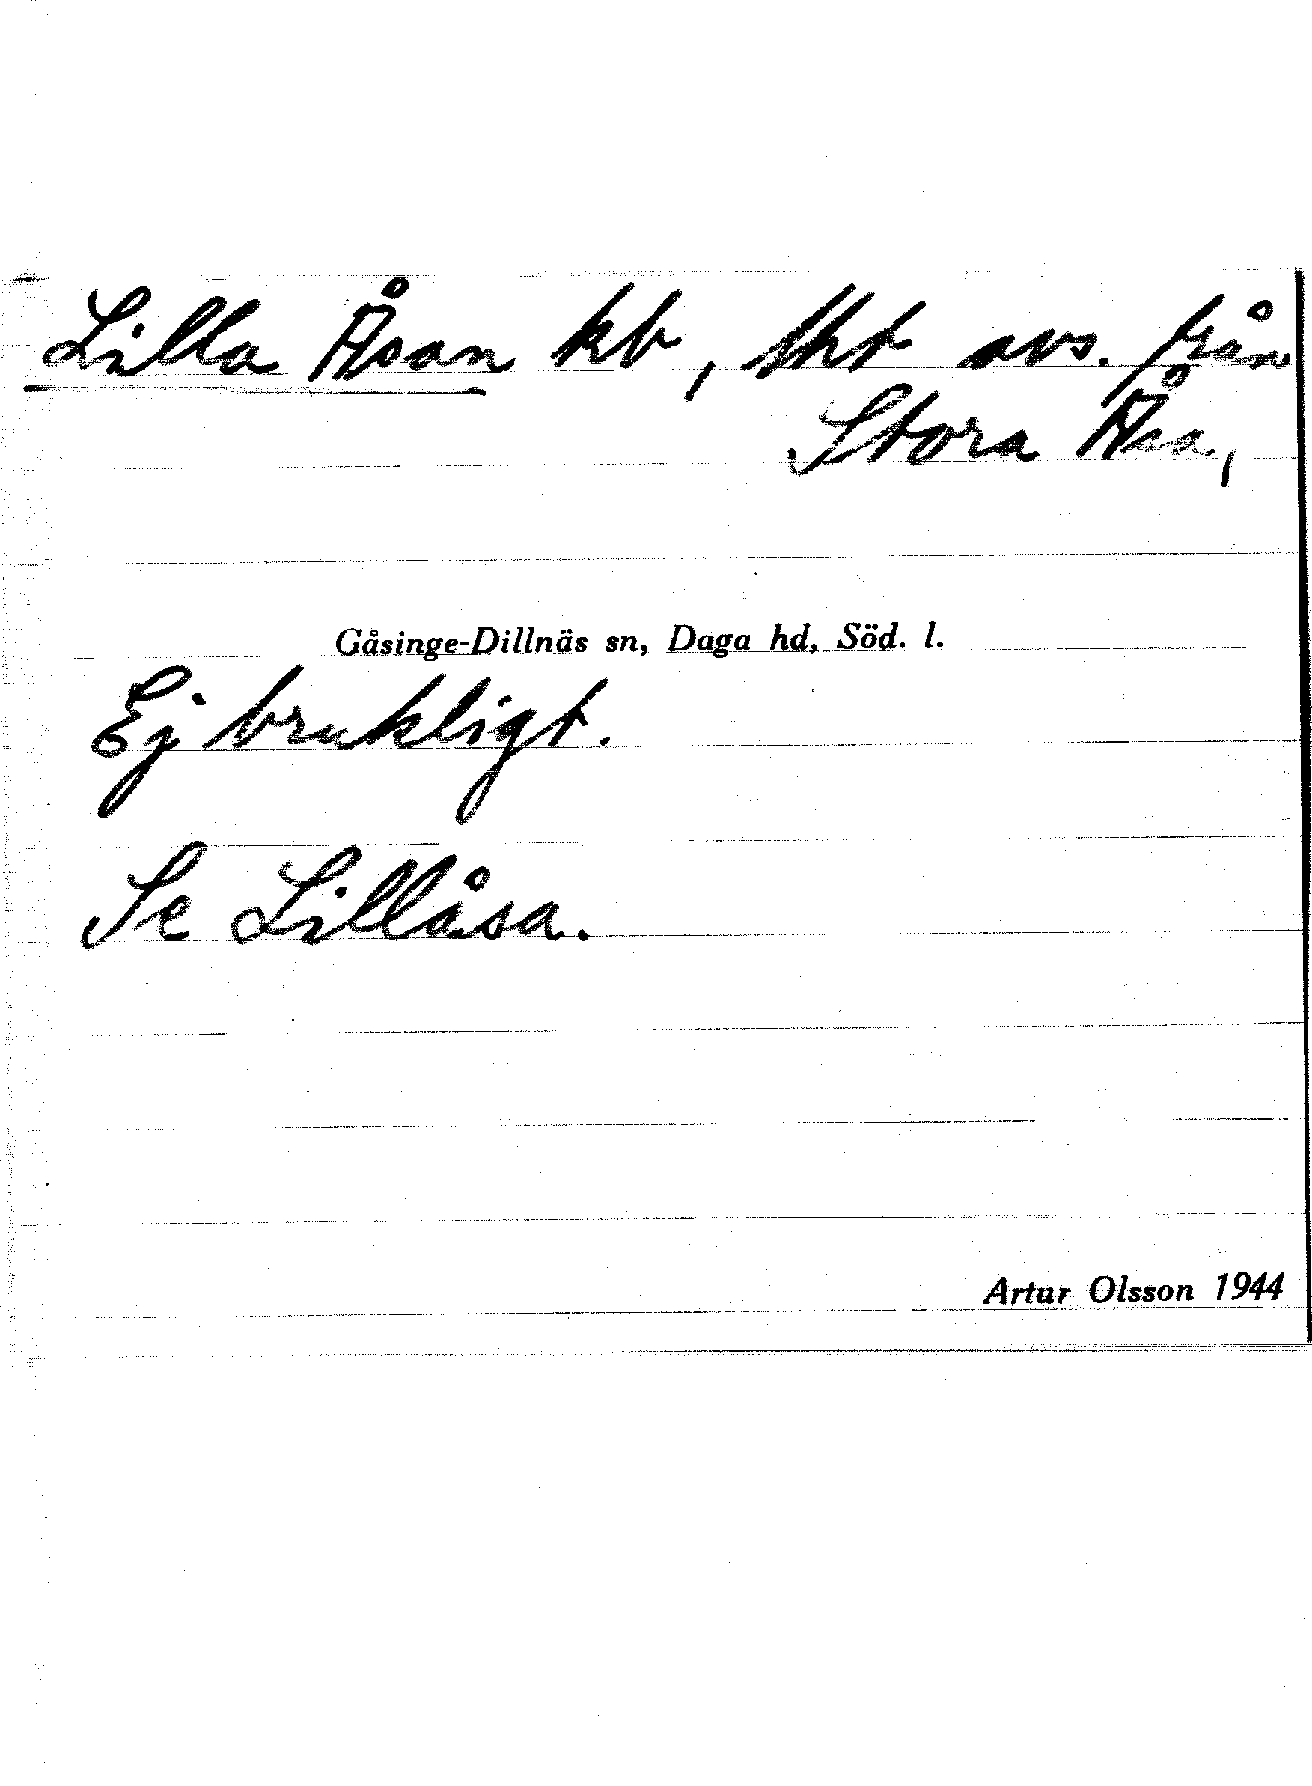 Lilla Åsan kb, tht avs. från
Stora Åsa,
Gåsinge-Dillnäs sn, Daga hd, Söd. l.
Ej brukligt.
Se Lillåsa.
Artur Olsson 1944